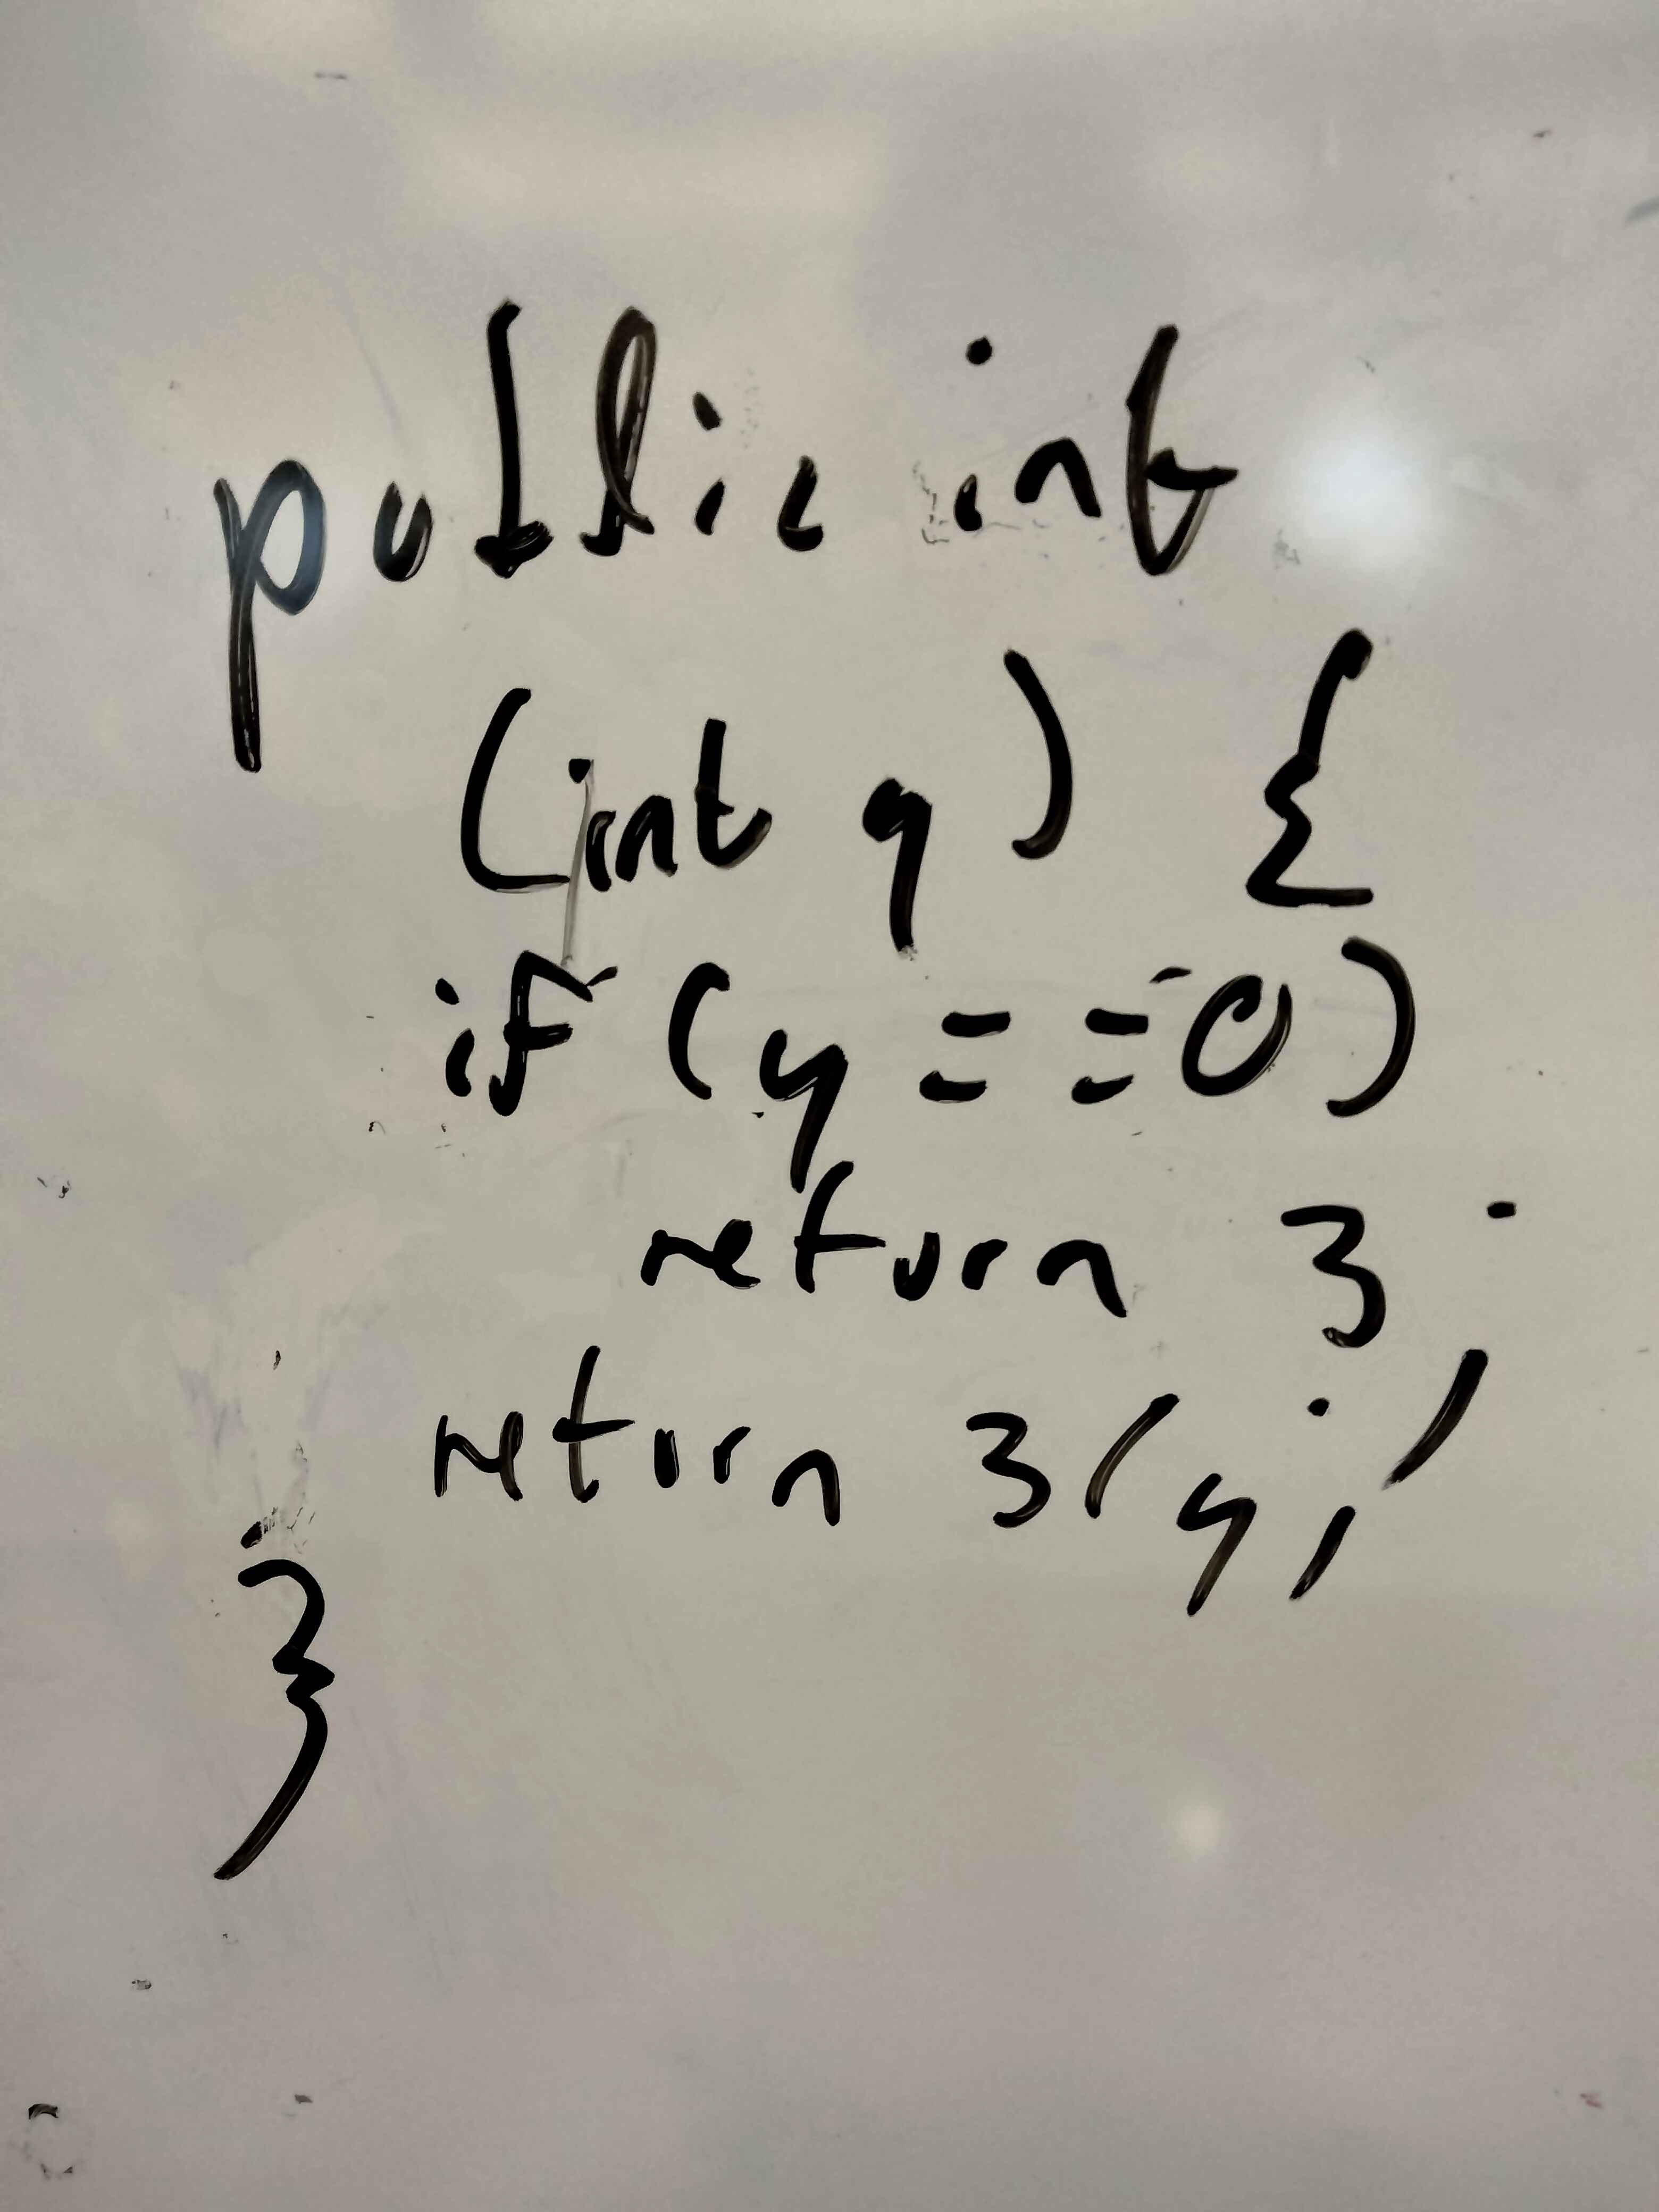 public int
(int y) {
if (y == 0)
return 3;
return 3(y;)
}